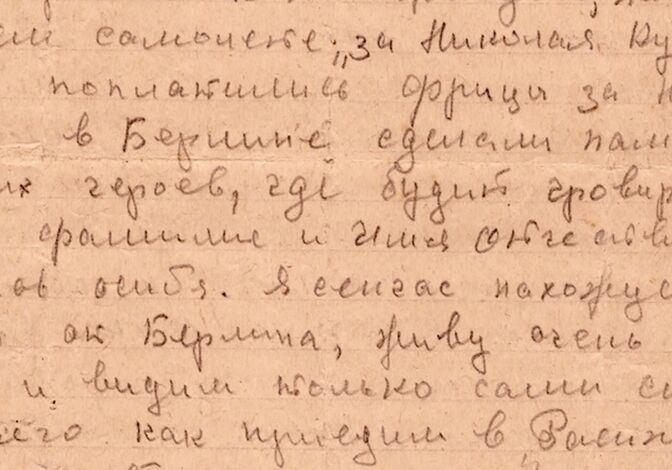 самолете; „за Николая Ку
поплатились фрицы за Н
в Берлине сделали пам
их героев, где будит гровир
фамилие и имя отчеств
особя. Я сейчас нахожус
ок Берлина, живу очень
и видим только сами с
его как приедим в Росию